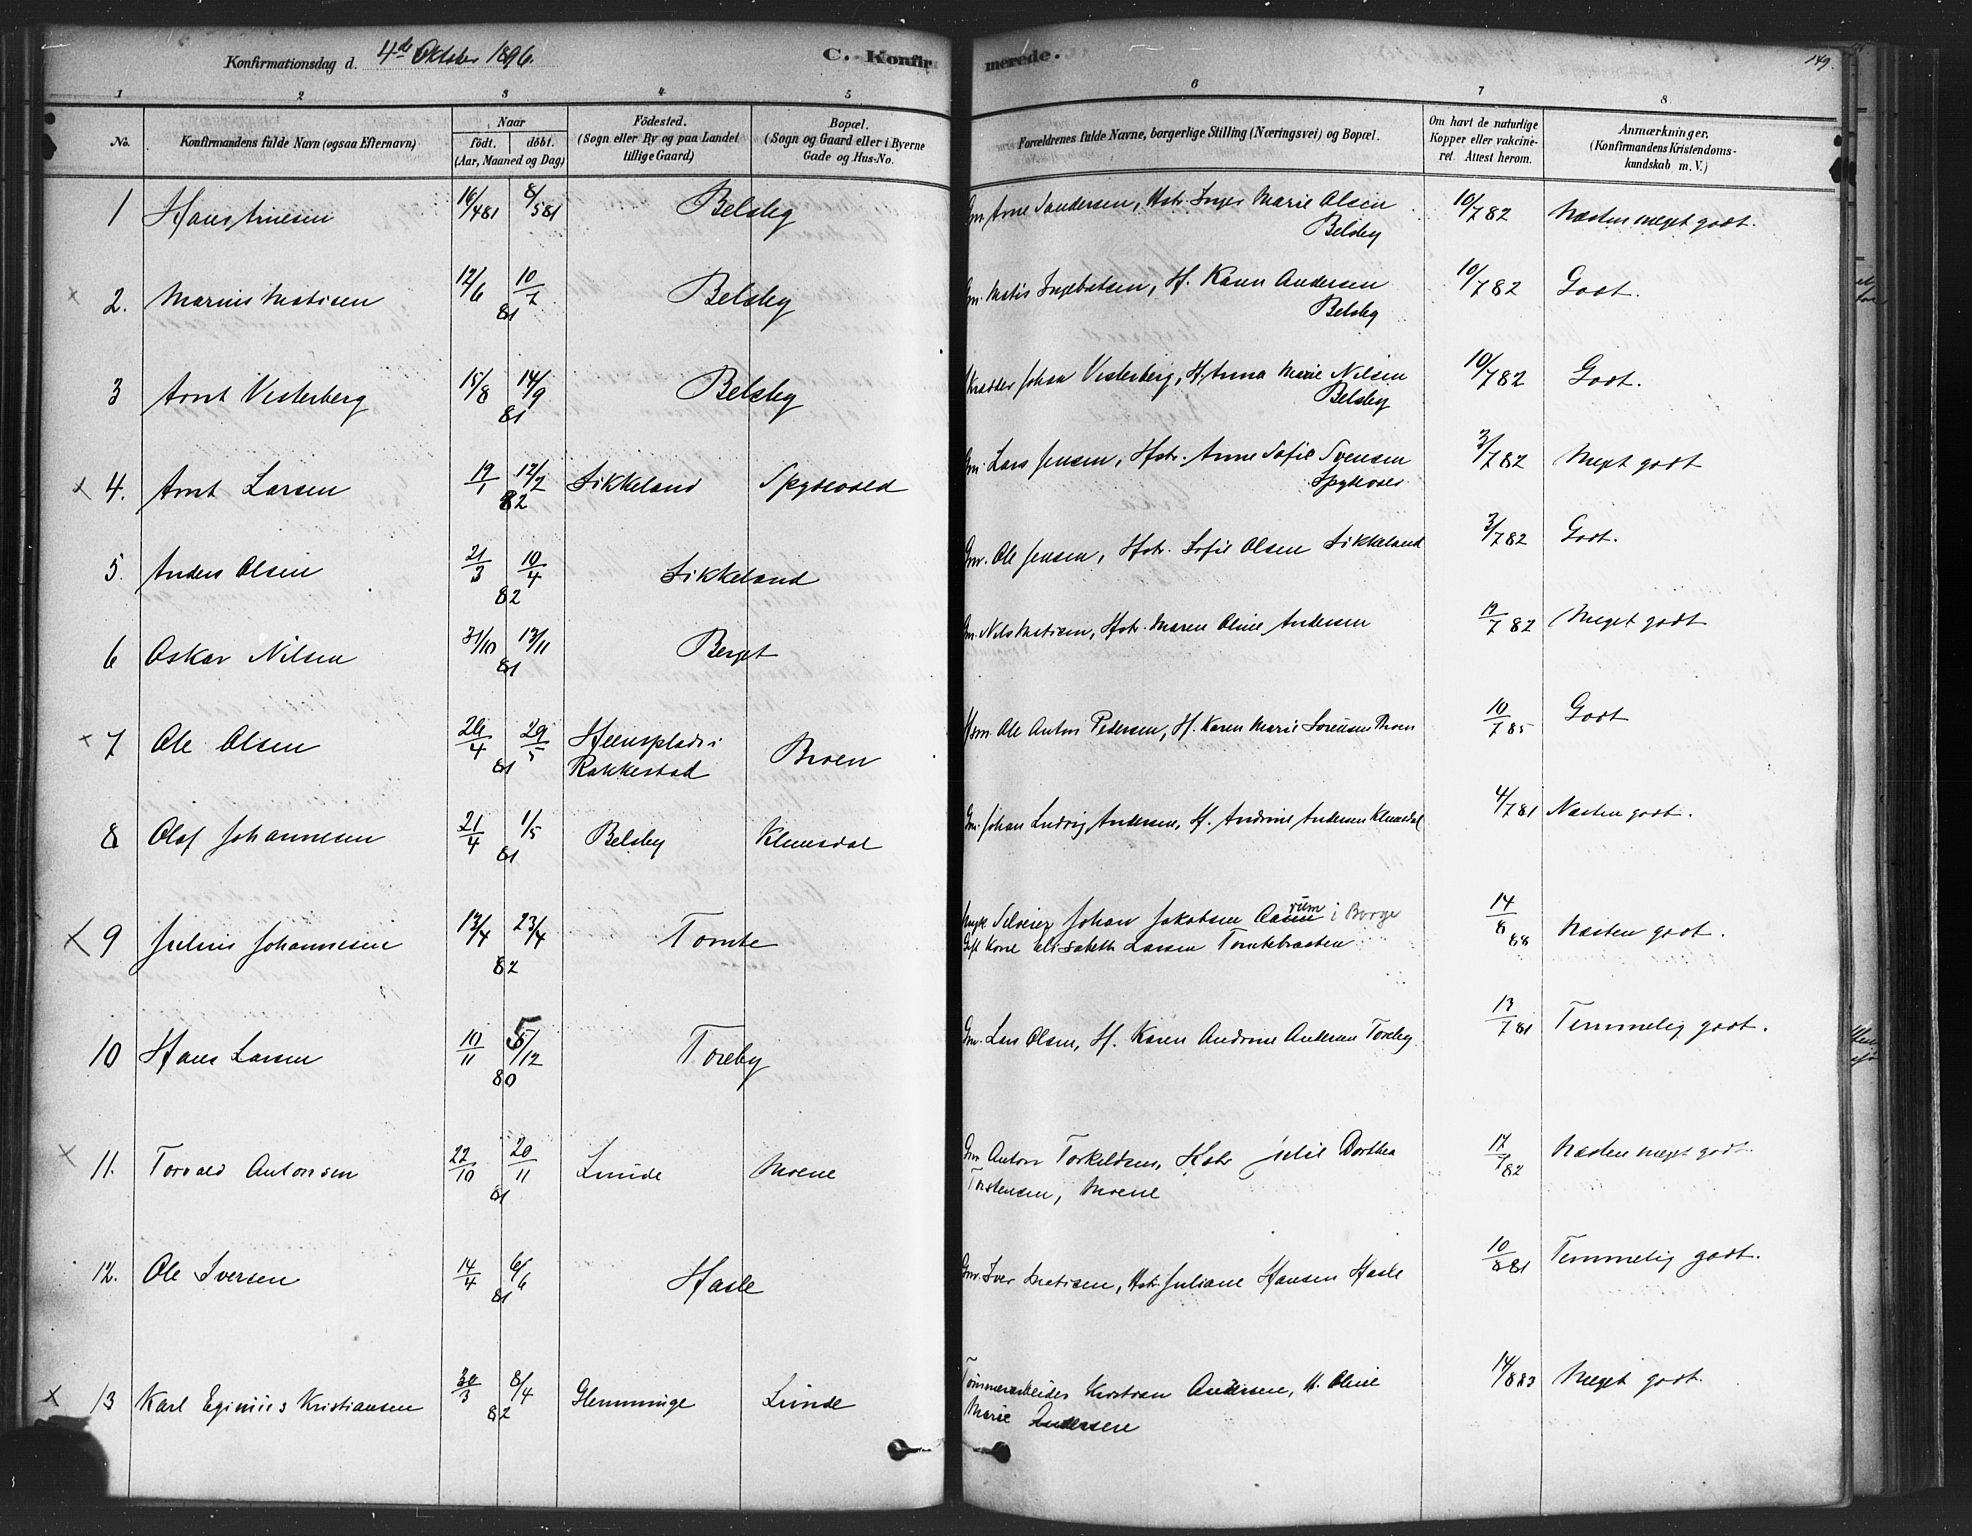 Konfirmationsdag d. 4de Oktober 1896. C. Konfirmerede. 149.
1 2 3 4 5 6 7 8
No. Konfirmandens fulde Navn (ogsaa Efternavn) Naar Födt. döbt. (Aar, Maaned og Dag) Födested. (Sogn eller By og paa Landet tillige Gaard) Bopæl. (Sogn og Gaard eller i Byerne Gade og Hus-No. Forældrenes fulde Navne, borgerlige Stilling (Næringsvei) og Bopæl. Om havt de naturlige Kopper eller vakcineret. Attest herom. Anmærkninger. (Konfirmandens Kristendomskundskab m. V.)
1 Hans Arnesen 16/4 81 8/5 81 Belsby Gm. Arne Sandersen, Hstr. Inger Marie Olsen 10/7 82 Næsten meget godt.
Belsby
2. Marius Matisen 12/6 10/7 81 Belsby Gm. Matis Ingebretsen, H. Karen Andersen 10/7 82 Godt.
Belsby
3 Arnt Vesterberg 15/8 14/9 81 Belsby Skrædder Johan Vesterberg, H. Anna Marie Nilsen 10/7 82 Godt.
Belsby
4. Arnt Larsen 19/1 12/2 82 Sikkeland Spydevold Gm. Lars Jensen, Hstr. Anne Sofie Svensen 3/7 82 Meget godt
5. Anders Olsen 21/3 10/4 82 Sikkeland Gm. Ole Jensen, Hstr. Sofie Olsen Sikkeland 3/7 82 Godt.
6 Oskar Nilsen 31/10 13/11 81 Berget Gm. Nils Matisen, Hstr. Maren Oline Andersen 19/7 82 Meget godt
7 Ole Olsen 26/4 29/5 81 Heenspladsi Rakkestad Broen Hsm. Ole Anton Pedersen, H. Karen Marie Sørensen Broen 10/7 85 Godt
8 Olaf Johannesen 21/4 1/5 81 Belsby Klemsdal Gm. Johan Ludvig Andersen, H. Andrine Andersen Klemsdal 4/7 81 Næsten godt.
9 Julius Johannesen 13/4 23/4 82 Tomte Johan Jakobsen i Borge 14/8 88 Næsten godt.
Elisabeth Larsen Tomtebraaten
10 Hans Larsen 10/11 5/12 80 Toreby Gm. Lars Olsen, H. Karen Andrine Andersen Toreby. 13/7 81 Temmelig godt.
11. Torvald Antonsen 22/10 20/11 81 Lunde Moene Gm. Anton Torkildsen, Hstr Julie Dorthea 17/7 82 Næsten meget godt.
Torstensen, Moene
12. Ole Iversen 14/4 6/6 81 Hasle Gm. Iver Matisen, Hstr. Juliane Hansen Hasle 10/8 81 Temmelig godt.
13 Karl Eginius Kristiansen 30/3 8/4 82 Glemminge Lunde Tømmerarbeider Kristian Andersen, H. Oline 14/8 83 Meget godt.
Marie Andersen